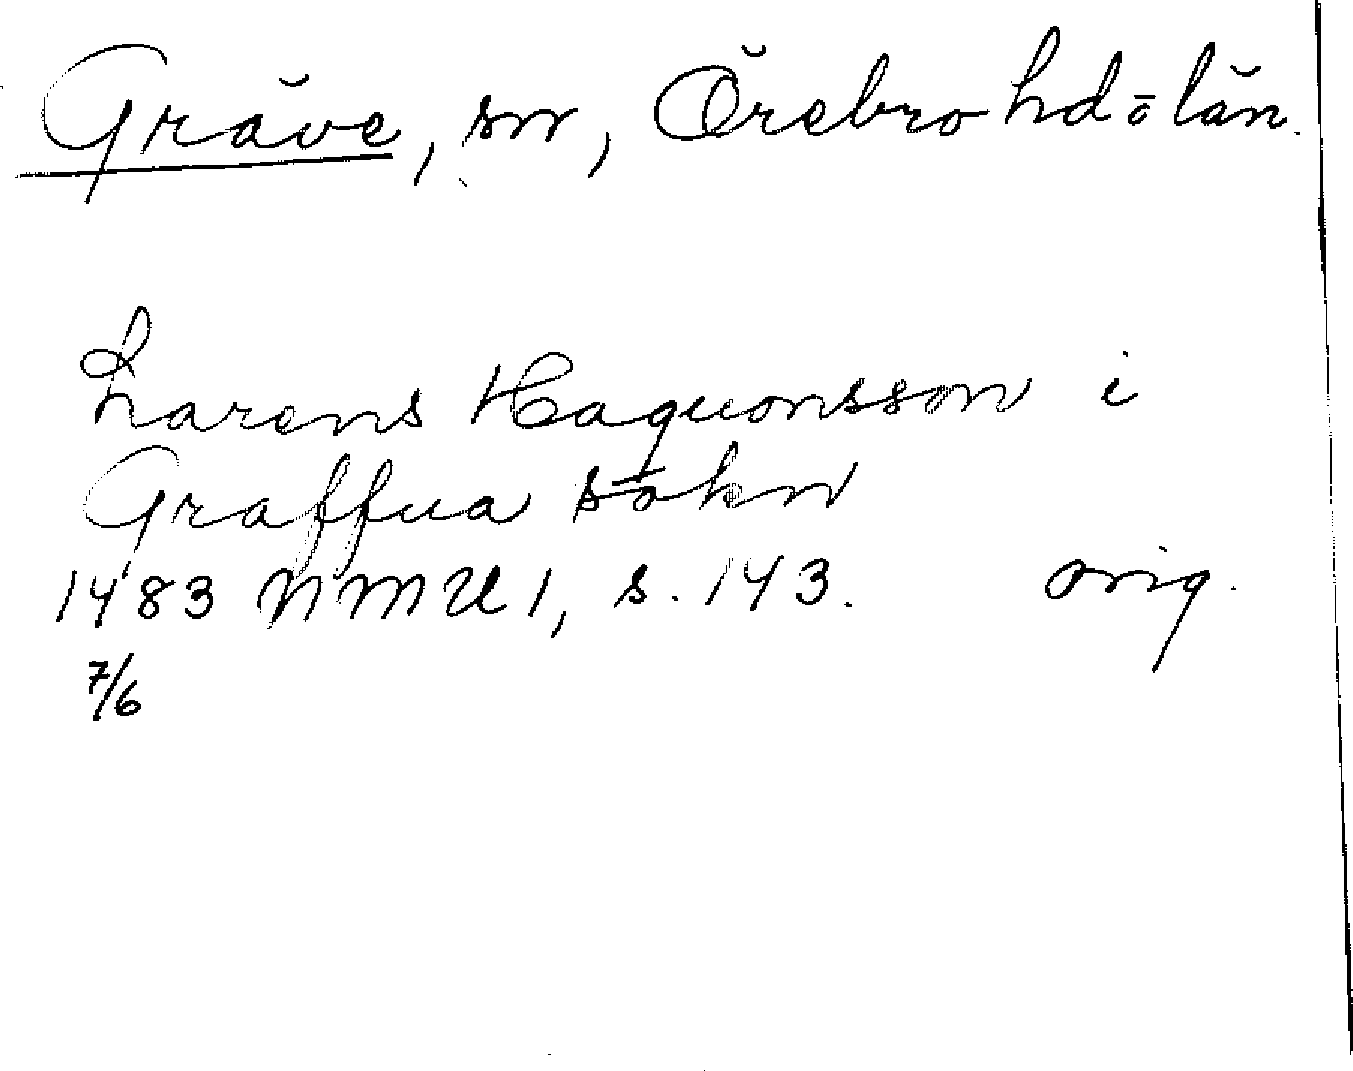 Gräve, sn, Örebro hd o län.
Larens Haquonsson i
Graffua sokn
1483 NMU 1, s. 143. orig.
7/6